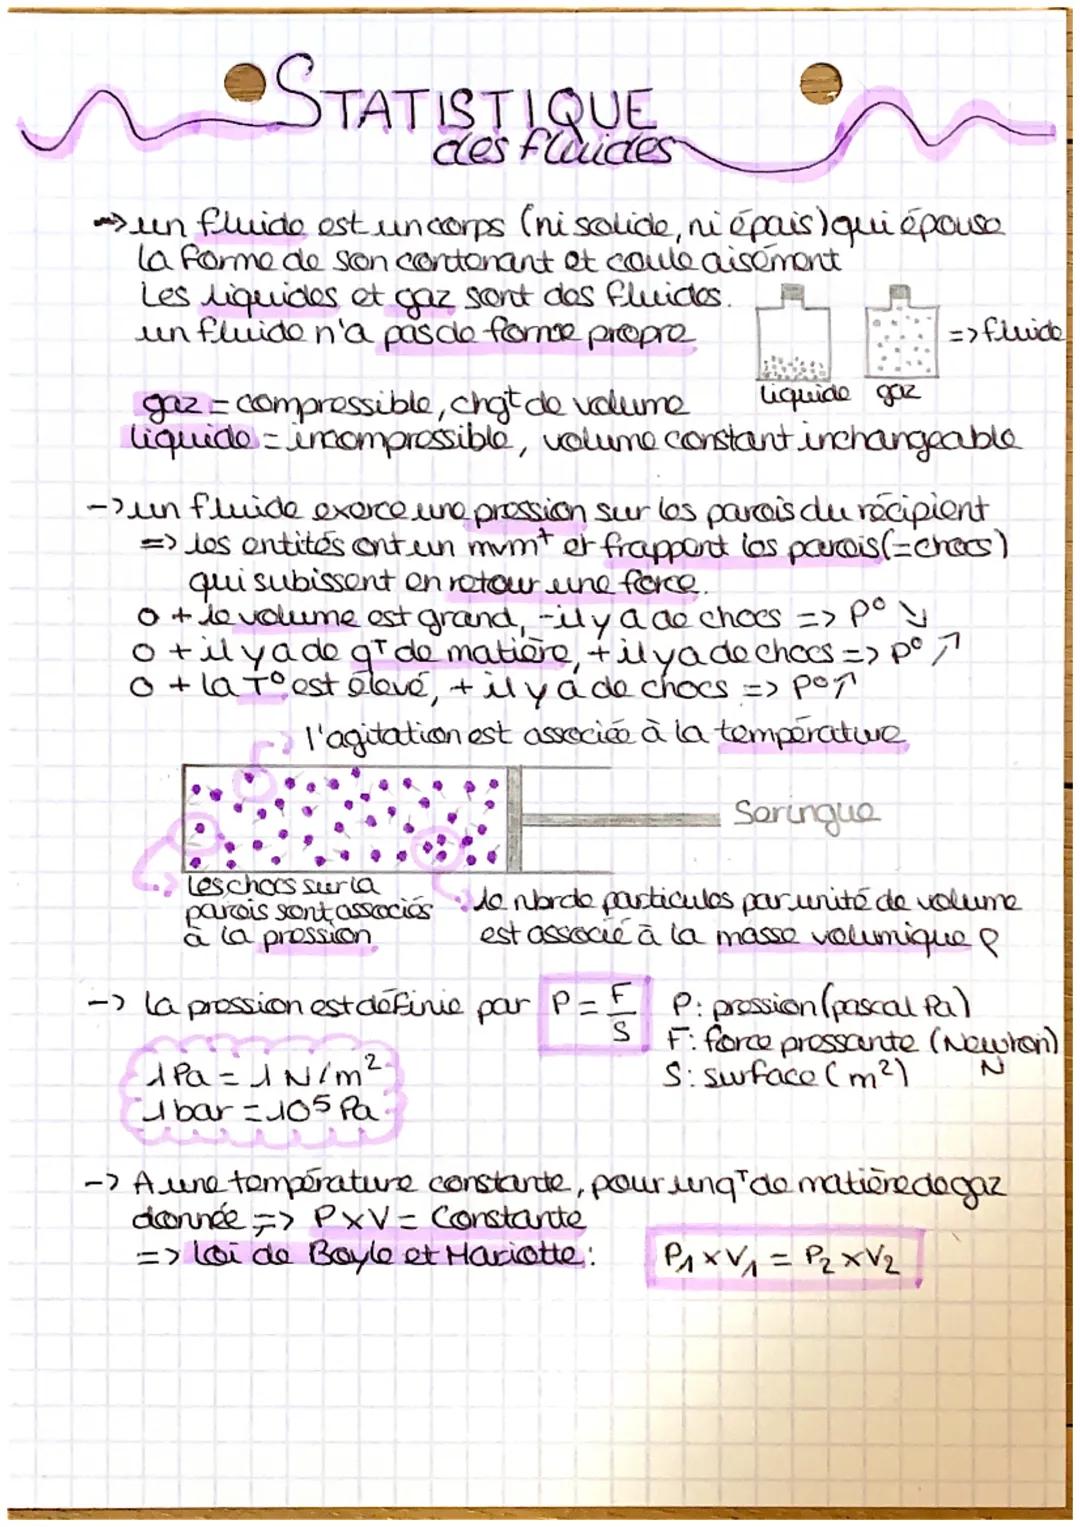 STATISTIQUE
des fluides
→ un fluide est un corps (ni solide, ni épais) qui épouse
la forme de son contenant et coule aisément
Les liquides et gaz sont des fluides.
un fluide n'a pas de forme propre
=> fluide
liquide gaz
gaz = compressible, chgt de volume
liquide = incompressible, volume constant inchangeable
-> un fluide exerce une pression sur les parois du récipient
=> les entités ont un mvmt et frappent les parois (=chocs)
qui subissent en retour une force.
o + le volume est grand, - il y a de chocs => p° ↘
o + il y a de qT de matière, + il y a de chocs => p° ↗
o + la T° est élevé, + il y a de chocs => p° ↗
l'agitation est associée à la température
Seringue
Les chocs sur la
parois sont associés
à la pression
le nbr de particules par unité de volume
est associé à la masse volumique ρ
-> la pression est définie par P = F/S
P : pression (pascal Pa)
F : force pressante (Newton)
N
S : surface (m²)
1 Pa = 1 N/m²
1 bar = 10⁵ Pa
-> A une température constante, pour un qT de matière de gaz
donnée => P×V = Constante
=> Loi de Boyle et Mariotte :
P₁ × V₁ = P₂ × V₂